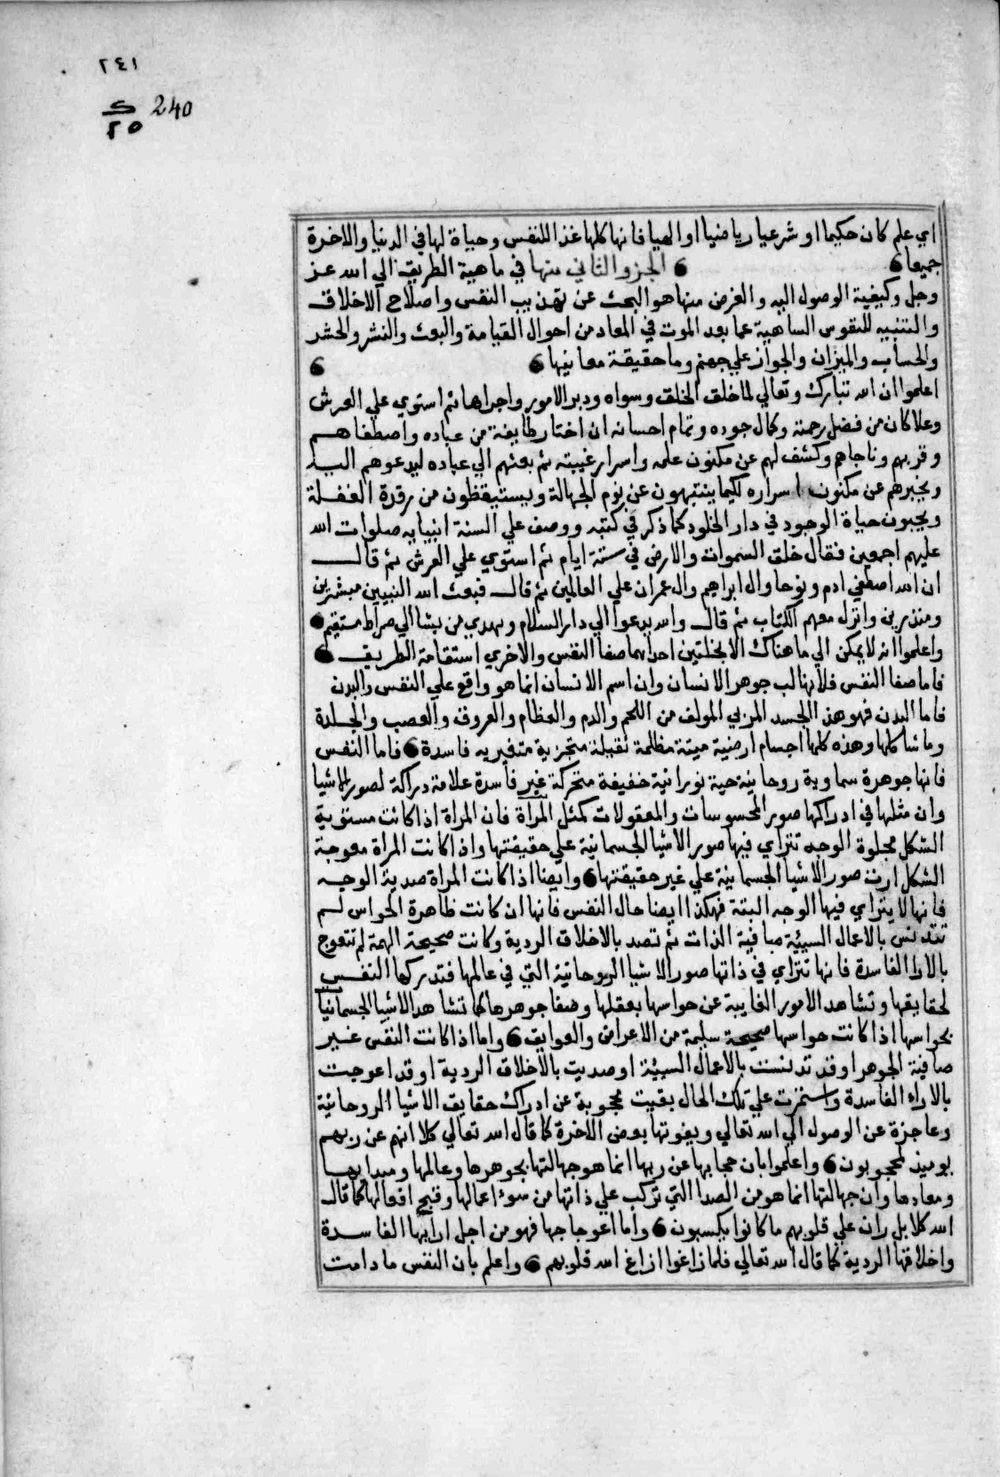 ٢٤١
240
٢٥
اي علم كان حكيما او شرعيا رياضيا او الهيا فانها كلها غذا للنفس وحياة لها في الدنيا والاخرة
جميعا الجزو الثاني منها في ماهية الطريق الي الله عز
وجل وكيفية الوصول اليه والغرض منها هو البحث عن تهذيب النفس واصلاح الاخلاق
والتنبيه للنفوس الساهية عما بعد الموت في المعاد من احوال القيامة والبعث والنشر والحشر
والحساب والميزان والجواز علي جهنم وما حقيقة معانيها
اعلموا ان الله تبارك وتعالي لما خلق الخلق وسواه ودبر الامور واجراها ثم استوي علي العرش
وعلا كان من فضل رحمته وكمال جوده وتمام احسانه ان اختار طايفة من عباده واصطفاهم
وقربهم وناجاهم وكشف لهم عن مكنون علمه واسرار غيبته ثم بعثهم الي عباده ليدعوهم اليه
ويخبرهم عن مكنون اسراره لكيما ينتبهون عن نوم الجهالة ويستيقظون من رقدة الغفلة
ويحيون حياة الوجود في دار الخلود كما ذكر في كتبه ووصف علي السنة انبيايه صلوات الله
عليهم اجمعين فقال خلق السموات والارض في ستة ايام ثم استوي علي العرش ثم قال
ان الله اصطفي ادم ونوحا وال ابراهيم وال عمران علي العالمين ثم قال فبعث الله النبيين مبشرين
ومنذرين وانزل معهم الكتاب ثم قال والله يدعوا الي دار السلام ويهدي من يشا الي صراط مستقيم
واعلموا انه لا يمكن الي ما هناك الا بخلتين احداهما صفا النفس والاخري استقامة الطريق
فاما صفا النفس فلانها لب جوهر الانسان وان اسم الانسان انما هو واقع علي النفس والبدن
فاما البدن فهو هذا الجسد المربي المولف من اللحم والدم والعظام والعروق والعصب والجلدة
وما شاكلها وهذه كلها اجسام ارضية ميتة مظلمة ثقيلة متجزية متغيريه فاسدة فاما النفس
فانها جوهرة سماوية روحانية حية نورانية خفيفة متحركة غير فاسدة علامة دراكة لصور الاشيا
وان مثلها في ادراكها صور المحسوسات والمعقولات كمثل المرآة فان المراة اذا كانت مستوية
الشكل مجلوة الوجه تترائي فيها صور الاشيا الجسمانية علي حقيقتها واذا كانت المراة معوجة
الشكل ارت صور الاشيا الجسمانية علي غير حقيقتها وايضا اذا كانت المراة صدية الوجه
فانها لا يترائي فيها الوجه البتة فهكذا ايضا حال النفس فانها ان كانت ظاهرة الحواس لم
تتدنس بالاعمال السيئة صافية الذات ثم تصد بالاخلاق الردية وكانت صحيحة الهمة لم تتعوج
بالارا الفاسدة فانها تترائي في ذاتها صور الاشيا الروحانية التي في عالمها فتدركها النفس
لحقايقها وتشاهد الامور الغايبة عن حواسها بعقلها وصفا جوهرها كما تشاهد الاشيا الجسمانيا
بحواسها اذا كانت حواسها صحيحة سليمة من الاعراض والعوايق واما اذا كانت النفس غير
صافية الجوهر اوقد تدنست بالاعمال السيئة او صديت بالاخلاق الردية او قد اعوجت
بالاراء الفاسدة واستمرت علي تلك الحال بقيت محجوبة عن ادراك حقايق الاشيا الروحانية
وعاجزة عن الوصول الي الله تعالي ويفوتها بعض الاخرة كما قال الله تعالي كلا انهم عن ربهم
يوميذ لمحجوبون واعلموا بان حجابها عن ربها انما هو جهالتها بجوهرها وعالمها ومبدايها
ومعادها وان جهالتها انما هو من الصدا التي تركب علي ذاتها من سوء اعمالها وقبح افعالها كما قال
الله كلا بل ران علي قلوبهم ما كانوا يكسبون واما اعوجاجها فهو من اجل ارايها الفاسدة
واخلاقها الردية كما قال الله تعالي فلما زاغوا ازاغ الله قلوبهم واعلم بان النفس ما دامت